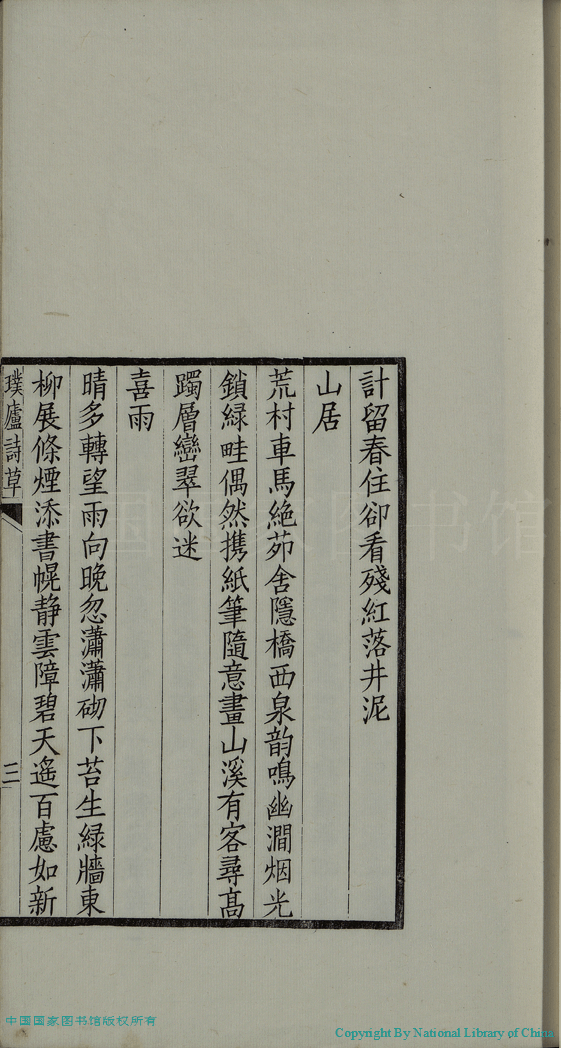 計留春住卻看殘紅落井泥
山居
荒村車馬絶茆舍隱橋西泉韵鳴幽澗烟光
鎖緑畦偶然携紙筆隨意畫山溪有客尋高
躅層巒翠欲迷
喜雨
晴多轉望雨向晚忽瀟瀟砌下苔生緑牆東
柳展條煙添書幌静雲障碧天遙百慮如新
璞廬詩草
三
中国国家图书馆
中国国家图书馆版权所有
Copyright By National Library of China